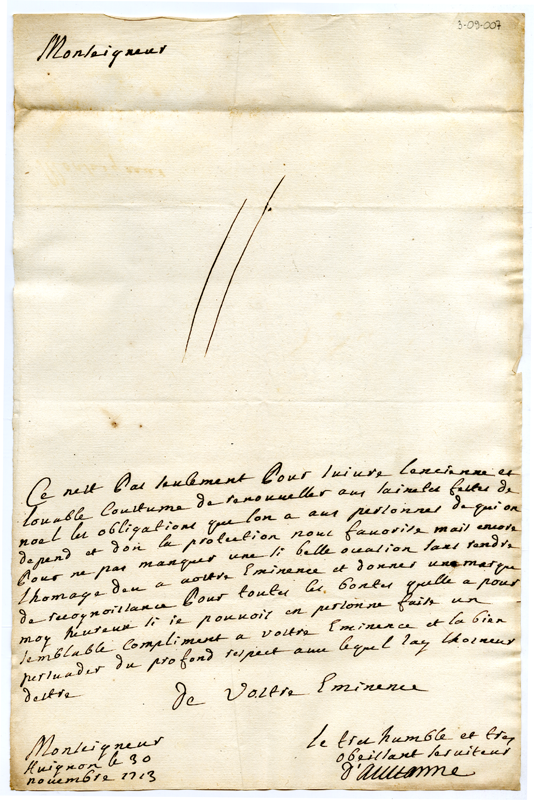 3-09-007
Monseigneur
Ce nest Pas seulement Pour suivre lencienne et
louable Coustume de renouveller aus sainctes festes de
noel les obligations que lon a aus personnes de qui on
depend et don la protection nous favorise mais encore
Pour ne pas manquer une si belle ocasion sans rendre
lhomage deu a vostre Eminence et donner une marque
de recognoissance Pour toutes les bontes quelle a pour
moy heureux si ie pouvois en personne faire un
semblable Compliment a vostre Eminence et la bien
persuader du profond respect avec lequel Jay lhoneur
destre
de vostre Eminence
Monseigneur
Auignon le 30
novembre 1713
le tres humble et tres
obeissant serviteur